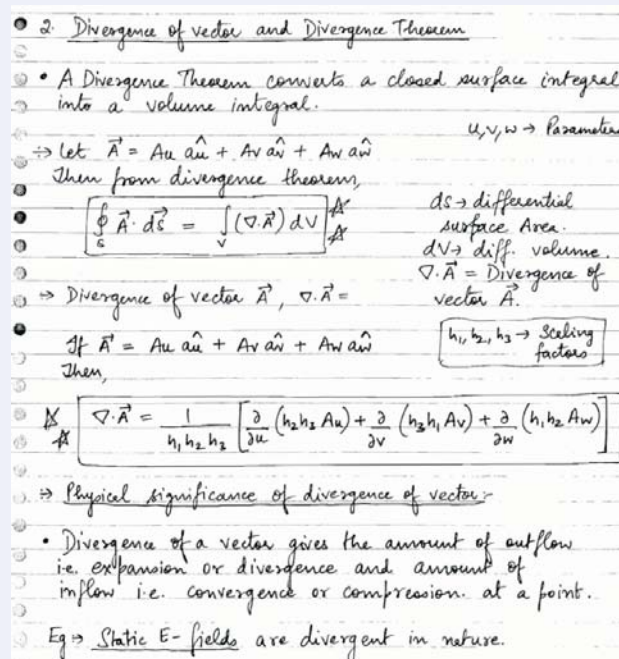 2. Divergence of vector and Divergence Theorem
• A Divergence Theorem converts a closed surface integral
into a volume integral.
u,v,w → Parameters
⇒ Let A⃗ = Au âu + Av âv + Aw âw
Then from divergence theorem,
∮_S A⃗ · ds⃗ = ∫_V (∇·A⃗) dV
ds → differential
surface Area.
dV → diff. volume.
∇·A⃗ = Divergence of
vector A⃗.
⇒ Divergence of vector A⃗, ∇·A⃗ =
If A⃗ = Au âu + Av âv + Aw âw
Then,
h₁, h₂, h₃ → Scaling
factors
∇·A⃗ = 1/(h₁ h₂ h₃) [∂/∂u (h₂h₃ Au) + ∂/∂v (h₃h₁ Av) + ∂/∂w (h₁h₂ Aw)]
⇒ Physical significance of divergence of vector:-
• Divergence of a vector gives the amount of outflow
i.e. expansion or divergence and amount of
inflow i.e. convergence or compression. at a point.
Eg ⇒ Static E-fields are divergent in nature.